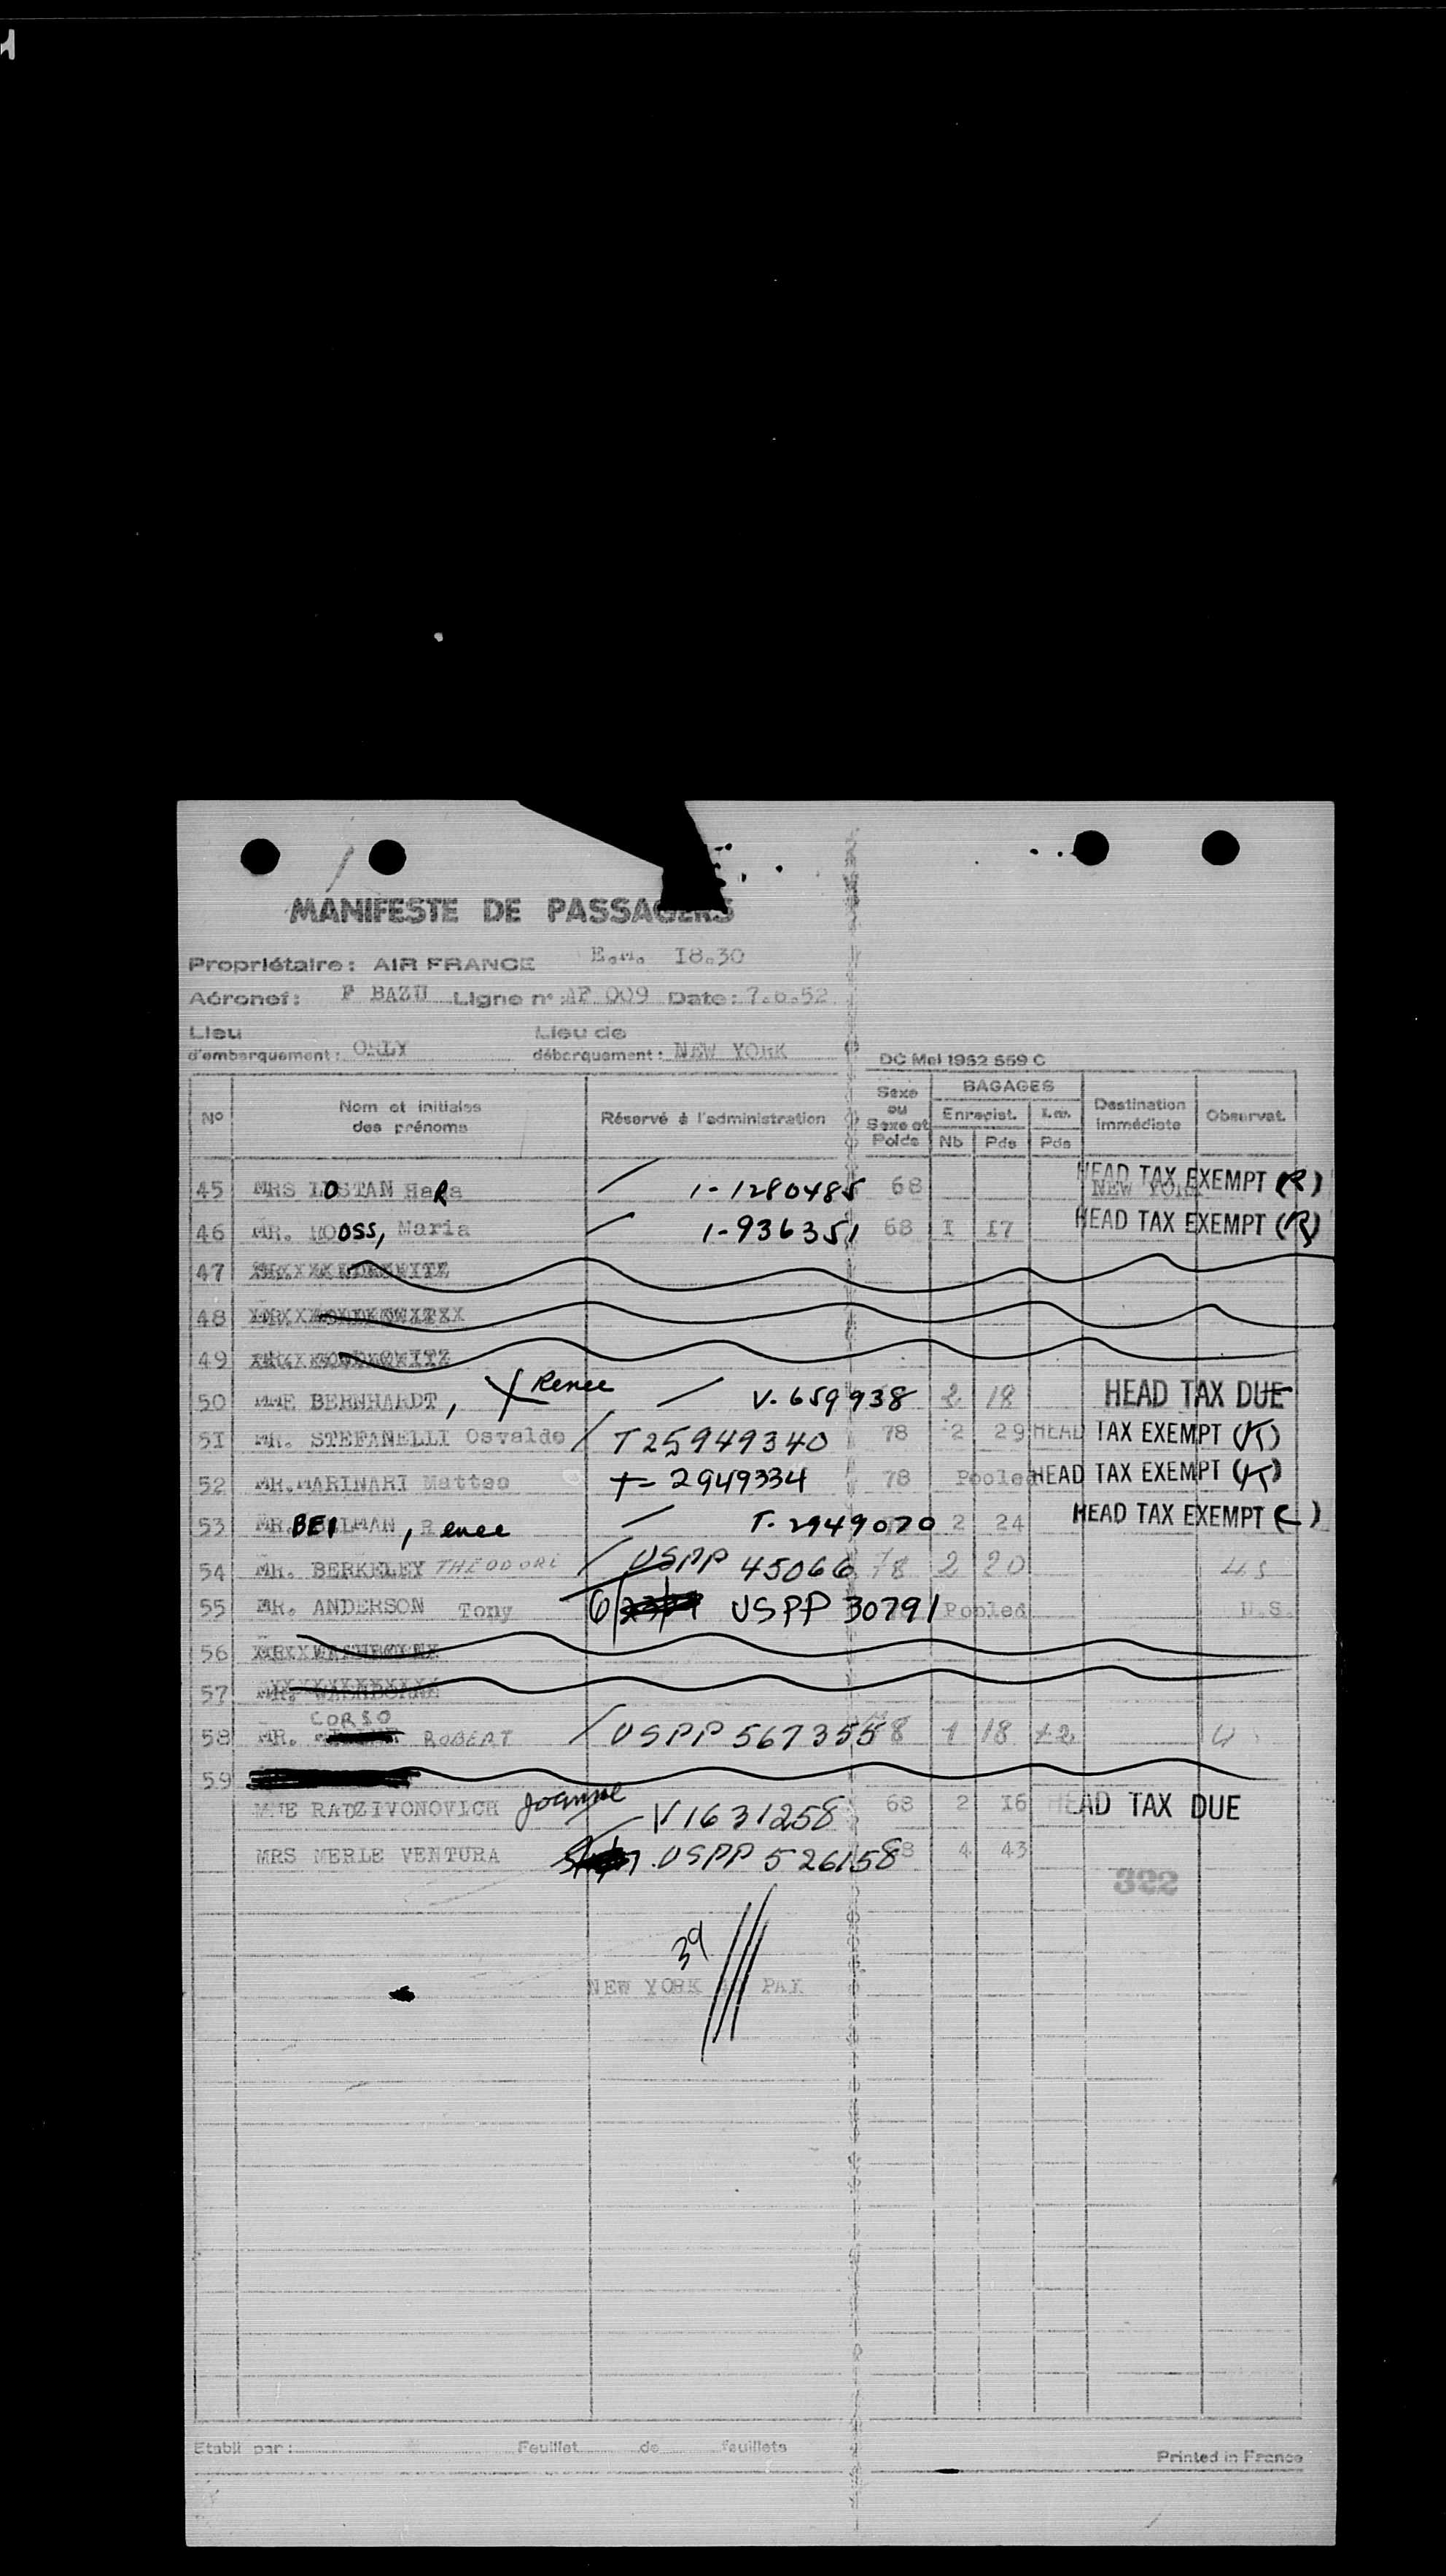 MANIFESTE DE PASSAGERS
Propriétaire: AIR FRANCE 18.30
Aéronef: F BAZU Ligne n° AF 009 Date: 7.6.52
Lieu d'embarquement: ORLY Lieu de débarquement: NEW YORK
DC Mel 1952 559 C
N° Nom et initiales des prénoms Réservé à l'administration Sexe ou Sexe et Poids BAGAGES Enregist. Nb Pds Pds Destination immédiate Observat.
45 MRS LOSTAN HaRa / 1-1280485 68 NEW YORK HEAD TAX EXEMPT (R)
46 MR. ROOSS, Maria / 1-936351 68 I I7 HEAD TAX EXEMPT (R)
47
48
49
50 MME BERNHARDT, Renee / V-659938 2 18 HEAD TAX DUE
5I MR. STEFANELLI Osvaldo / T25949340 78 2 29 HEAD TAX EXEMPT
52 MR. MARINARI Matteo T-2949334 78 Pooled HEAD TAX EXEMPT
53 MR. BEILMAN, Renee / T-2949070 2 24 HEAD TAX EXEMPT
54 MR. BERKELEY THEODORE / USPP 45066 78 2 20 US
55 MR. ANDERSON Tony USPP 30791 Pooled U.S.
56
57 MR. WASHBORNE
58 MR. CORSO ROBERT / USPP 567355 1 18 +2
59
MME RADZIVONOVICH Joanne V1631258 68 2 I6 HEAD TAX DUE
MRS MERLE VENTURA USPP 526158 4 43
322
39
NEW YORK PAX
Etabli par: Feuillet de feuillets
Printed in France